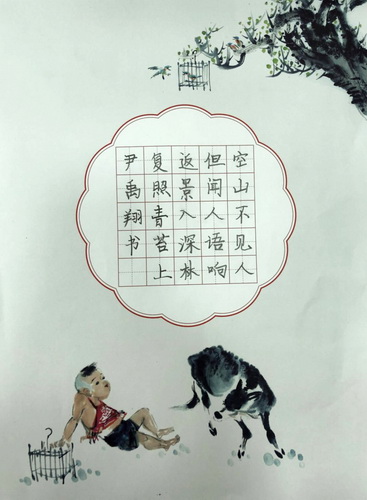 空山不见人
但闻人语响
返景入深林
复照青苔上
尹禹翔书